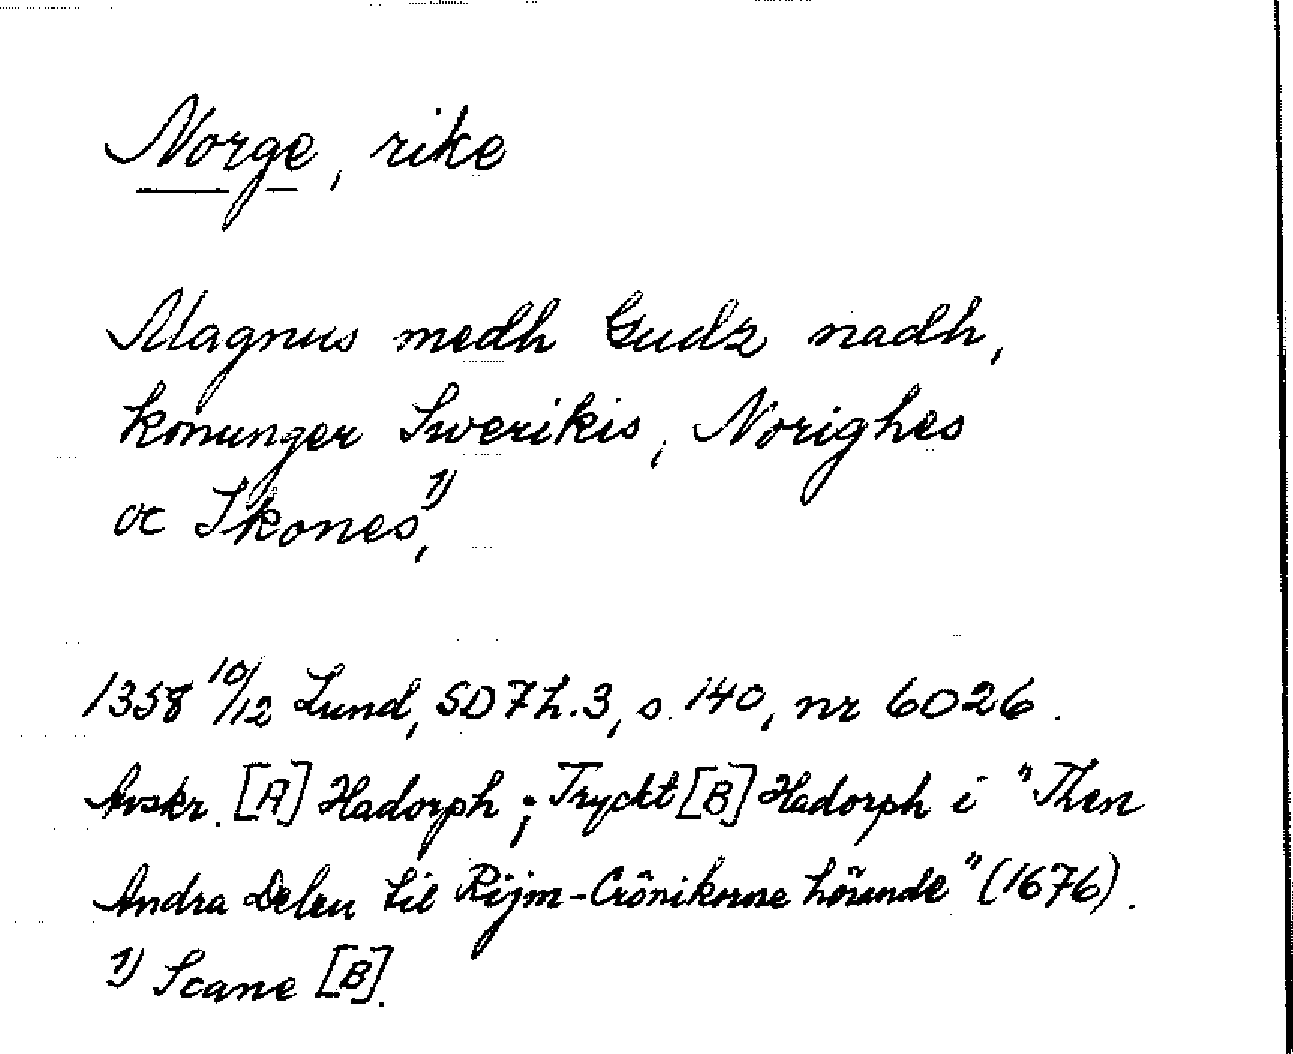 Norge, rike
Magnus medh Gudz nadh,
konunger Swerikis, Norighes
oc Skones,¹⁾
1358 10/12 Lund, SD 7 h. 3, s. 140, nr 6026.
Avskr. [A] Hadorph; Tryckt [B] Hadorph i "Then
Andra Delen til Rijm-Crönikorne hörande" (1676).
1) Scane [B].